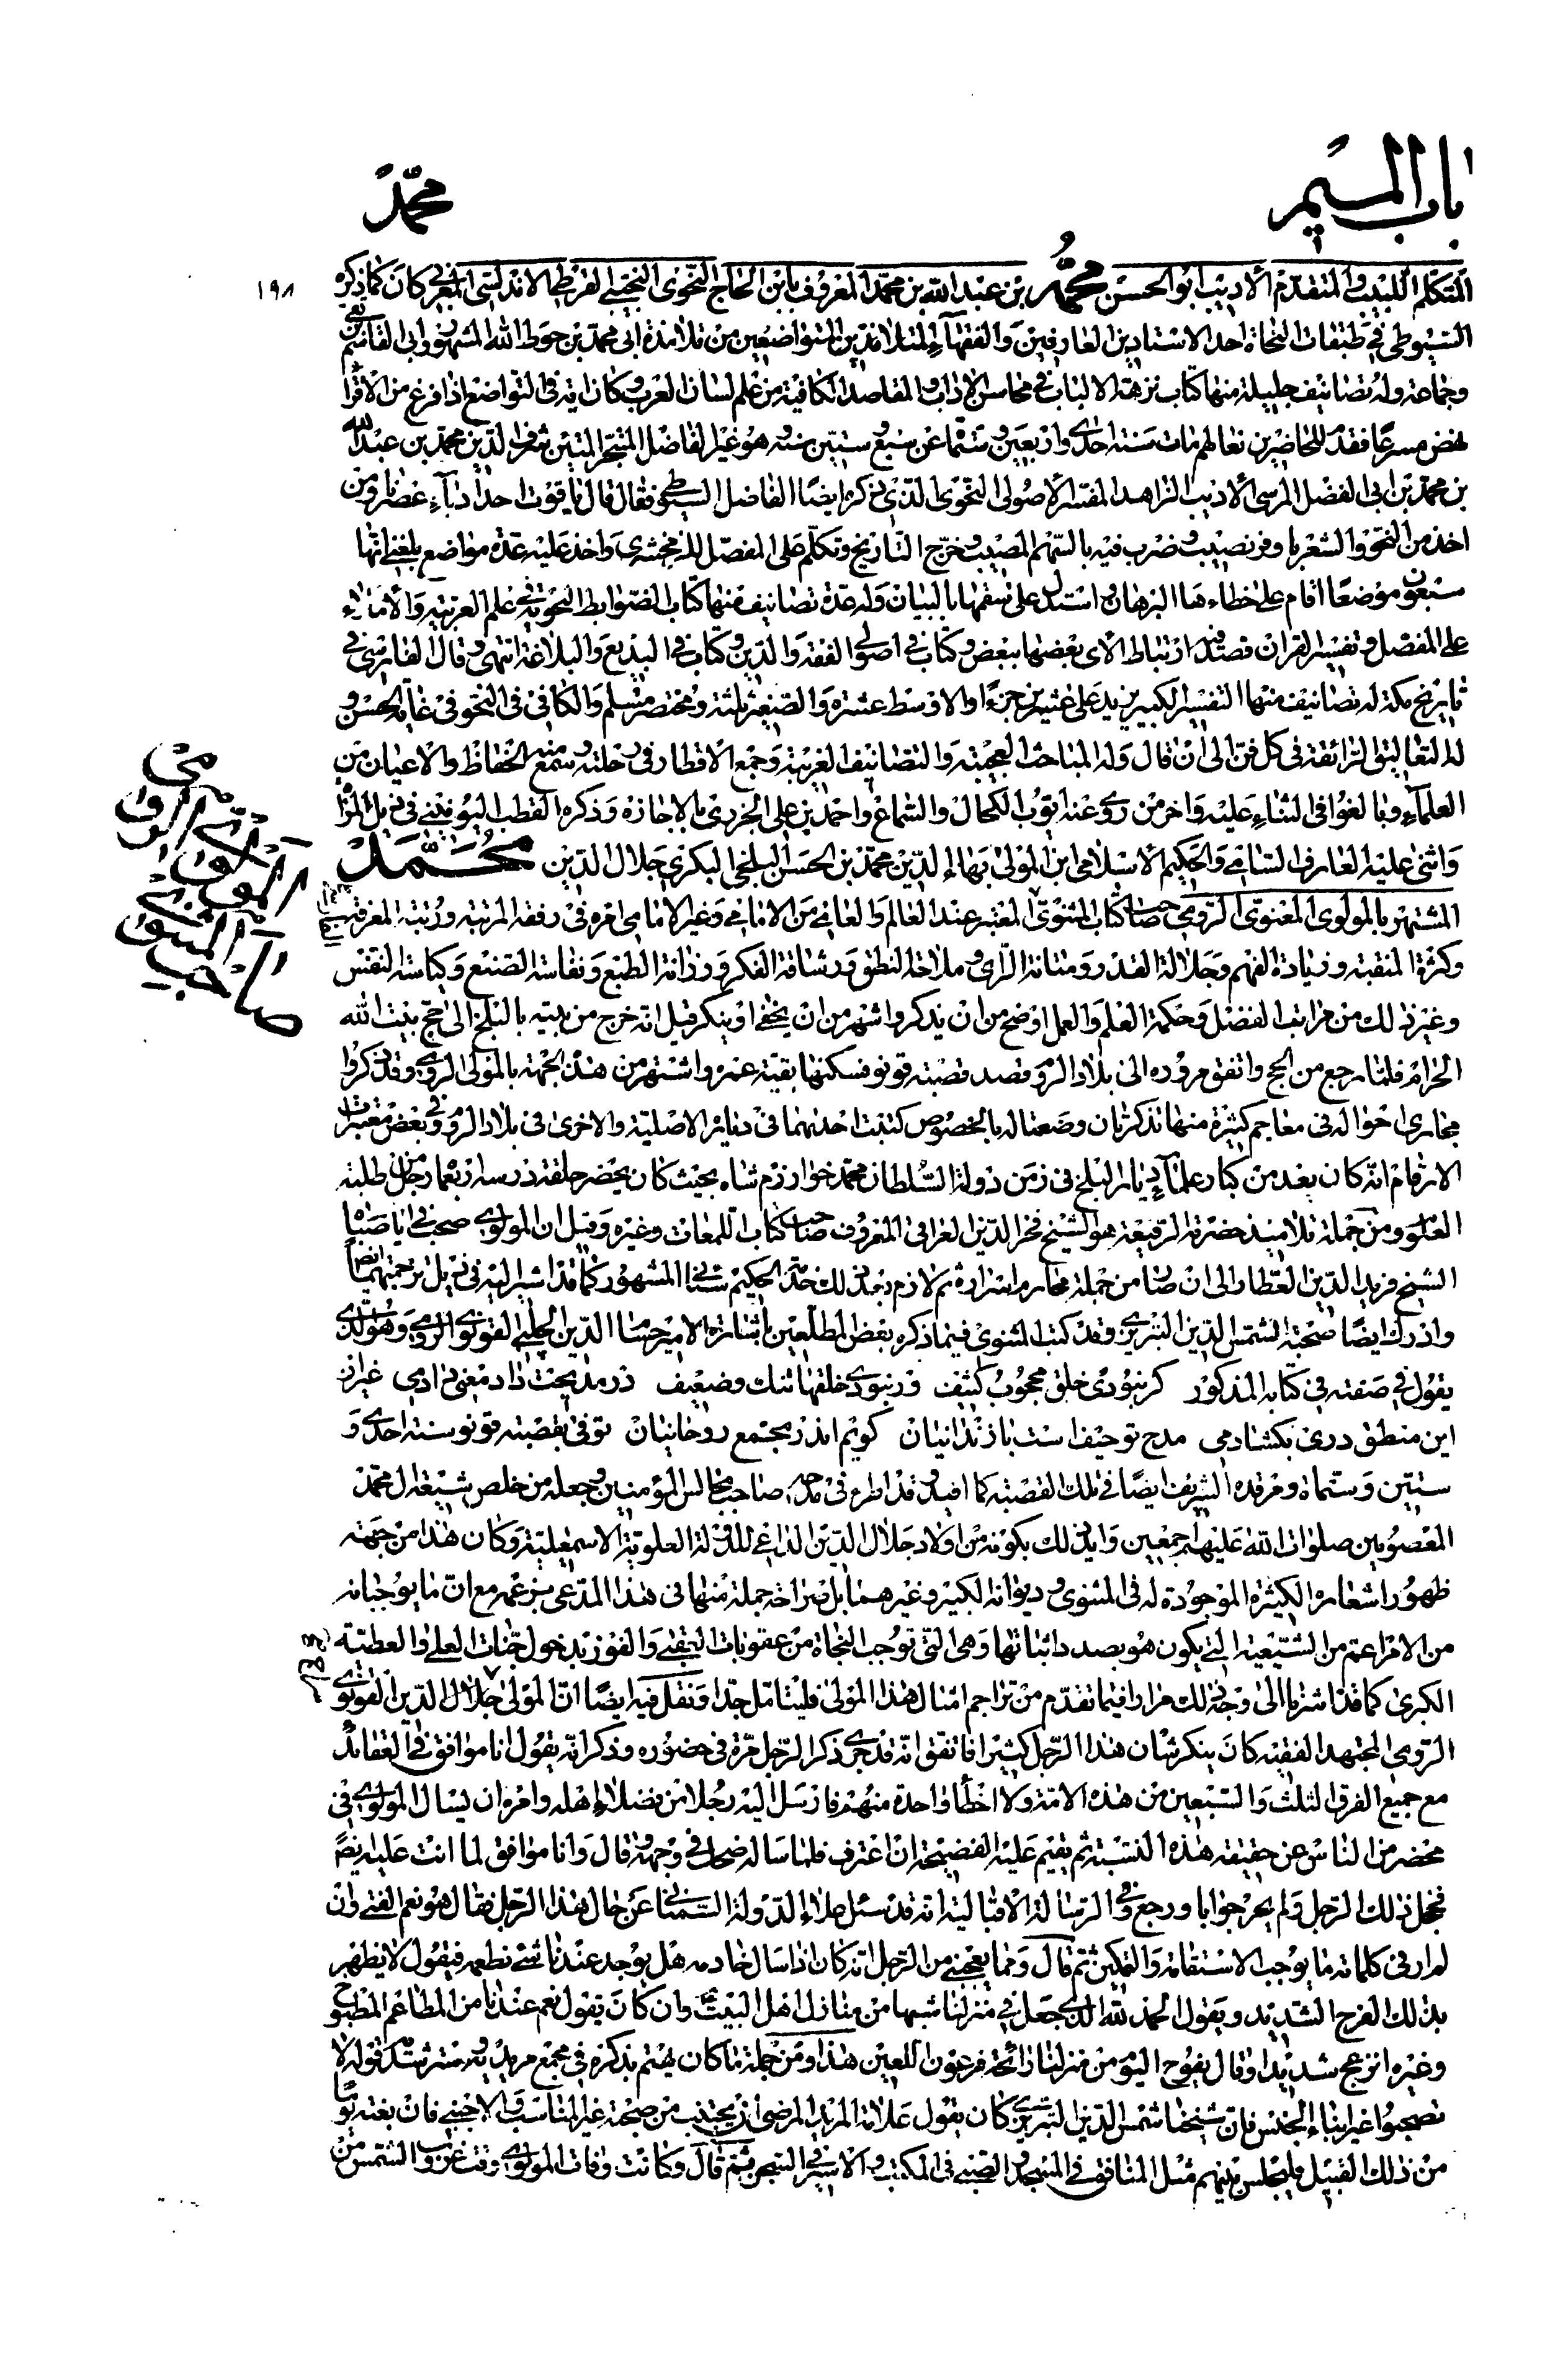 باب الميم
محمد
١٩٨
المتكلم اللبيب والمتقدم الأديب ابو الحسن محمد بن عبد الله بن محمد المعروف بابن الحاج النحوى التجيبى القرطبى الاندلسى المغربى كان كما ذكره
السيوطى فى طبقات النحاة احد الاستادين العارفين والفقهاء المتواضعين من تلامذة ابى محمد بن حوط الله المشهور وابى القاسم بن بقى
وجماعة وله تصانيف جليلة منها كتاب نزهة الالباب فى محاسن الاداب والمقاصد الكافية من علم لسان العرب وكان اية فى التواضع اذا فرغ من الاقرا
نهض مسرعا فقدم للحاضرين نعالهم مات سنة احدى واربعين وستمأة عن سبع وستين سنة وهو غير الفاضل المتبحر المتين شرف الدين محمد بن عبد الله
بن محمد بن ابى الفضل المرسى الأديب الزاهد المفسر الاصولى النحوى الذى ذكره ايضا الفاضل السيوطى فقال قال ياقوت احد ادباء عصرنا ومن
اخذ من النحو والشعر باوفر نصيب وضرب فيه بالسهم المصيب وخرج التاريج وتكلم على المفصل للزمخشرى واخذ عليه عدة مواضع بلغنى انها
سبعون موضعا اقام على خطاءها البرهان واستدل على سقمها بالبيان وله عدة تصانيف منها كتاب الضوابط النحوية فى علم العربية والاملاء
على المفصل وتفسير القران قصد فيه ارتباط الاى بعضها ببعض وكتاب فى اصولى الفقه والدين وكتاب فى البديع والبلاغة انتهى وقال الفارسى فى
تاريخ مكة له تصانيف منها التفسير الكبير يزيد على عشرين جزءا والاوسط عشرة والصغير ثلثة ومختصر مسلم والكافى فى النحو فى غاية الحسن و
له التعاليق الرائقة فى كل فن الى ان قال وله المباحث العجيبة والتصانيف الغريبة وجمع الاقطار فى رحلته وسمع منه الحفاظ والاعيان من
العلماء وبالغوا فى الثناء عليه واخر من روى عنه ايوب الكحال بالسماع واحمد بن على الجزرى بالاجازة وذكره القطب اليونينى فى ذيل المراة
واثنى عليه العارف السامى والحكيم الاسلامى ابن المولى بهاء الدين محمد بن الحسن البلخى البكرى جلال الدين محمد
المشتهر بالمولوى المعنوى الرومى صاحب كتاب المثنوى المعتبر عند العالم والعامى من الامامى وغير الامامى امره فى رفعة المرتبة ورتبة المعرفة
وكثرة المنقبة وزيادة الفهم وجلالة القدر ومتانة الراى وملاحة النطق ورشاقة الفكر ورزانة الطبع ونفاسة الصنع وكياسة النفس
وغير ذلك من مراتب الفضل وحكمة العلم والعمل اوضح من ان يذكر واشهر من ان يخفى او ينكر قيل انه خرج من بيته بالبلخ الى حج بيت الله
الحرام فلما رجع من الحج واتفق مروره الى بلاد الروم قصد قصبة قونو فسكنها بقية عمره واشتهر من هذه الجهة بالمولى الرومى وقد ذكروا
مجارى احواله فى معاجم كثيرة منها تذكرتان وضعتا له بالخصوص كتبت احديهما فى دياره الاصلية والاخرى فى بلاد الروم وفى بعض معتبرات
الارقام انه كان يعد من كبار علماء ديار البلخ فى زمن دولة السلطان محمد خوارزم شاه بحيث كان يحضر حلقة درسه اربعمأة رجل من طلبة
العلوم ومن جملة تلاميذ حضرته الرفيعة هو الشيخ فخر الدين العراقى المعروف صاحب كتاب اللمعات وغيره وقيل ان المولوى صحب فى ايام صباه
الشيخ فريد الدين العطار الى ان صار من جملة محارم اسراره ثم لازم بعد ذلك خدمة الحكيم سنائى المشهور كما قد اشير اليه فى ذيل ترجمتهما ايضا
وادرك ايضا صحبة الشمس الدين التبريزى وقد كتب المثنوى فيما ذكره بعض المطلعين باشارة الامير حسام الدين الجلبى القونوى الرومى وهو الذى
يقول فى صفته فى كتابه المذكور كر نبودى خلق محجوب كثيف ور نبودى حلقها تنك وضعيف در مديحت داد معنى دادمى غير از
اين منطق درى بكشادمى مدح تو حيف است با زندانيان كويم اندر مجمع روحانيان توفى بقصبة قونو سنة احدى و
ستين وستمأة ومرقده الشريف ايضا فى تلك القصبة كما افيد وقد اطرء فى مدحه صاحب مجالس المؤمنين وجعله من خلص شيعة ال محمد
المعصومين صلوات الله عليهم اجمعين وايد ذلك بكونه من اولاد جلال الدين الداعى للدولة العلوية الاسمعيلية وكان هذا من جهة
ظهور اشعاره الكثيرة الموجودة له فى المثنوى وديوانه الكبير وغيرهما بل صراحة جملة منها فى هذا المدعى بزعمه مع ان ما يوجبانه
من الامر اعم من الشيعية التى يكون هو بصدد اثباتها وهى التى توجب النجاة من عقوبات العقبى والفوز بدخول جنات العلى والعطية
الكبرى كما قد اشرنا الى وجه ذلك مرارا فيما تقدم من تراجم امثال هذا المولى فليتامل جدا ونقل فيه ايضا ان المولى جلال الدين القونوى
الرومى المجتهد الفقيه كان ينكر شان هذا الرجل كثيرا فاتفق انه قد جرى ذكر الرجل مرة فى حضوره وذكر انه يقول انا موافق فى العقائد
مع جميع الفرق الثلث والسبعين من هذه الامة ولا اخطأ واحدة منهم فارسل اليه رجلا من فضلاء اهله وامره ان يسال المولوى فى
محضر من الناس عن حقيقة هذه النسبة ثم يقيم عليه الفضيحة ان اعترف فلما ساله ضحك فى وجهه وقال وانا موافق لما انت عليه ايضا
فخجل ذلك الرجل ولم يحر جوابا ورجع وفى الرسالة الاقبالية انه قد سئل علاء الدولة السمنانى عن حال هذا الرجل فقال هو نعم الفتى وان
لم ار فى كلماته ما يوجب الاستقامة والتمكين ثم قال ومما يعجبنى من الرجل انه كان اذا سال خادمه هل يوجد عندنا شئ نطعمه فيقول لا يظهر
بذلك الفرح الشديد ويقول الحمد لله الذى جعل فى منزلنا شبها من منازل اهل البيت وان كان يقول نعم عندنا من المطاعم المطبوخ
وغيره انزعج شديدا وقال يفوح اليوم من منزلنا رائحة فرعون اللعين هذا ومن جملة ما كان يهتم بذكره فى مجمع مريديه ومسترشديه قوله لا
تصحبوا غير ابناء الجنس فان شيخنا شمس الدين التبريزى كان يقول علامة المريد المرضى ان يجتنب من صحبة غير المناسب والاجنبى فان بغته يوما
من ذلك القبيل فليجلس بينهم مثل المنافق فى المسجد والصبى فى المكتب والاسير فى السجن ثم قال وكانت وفات المولوى وقت غروب الشمس من
صاحب المثنوى